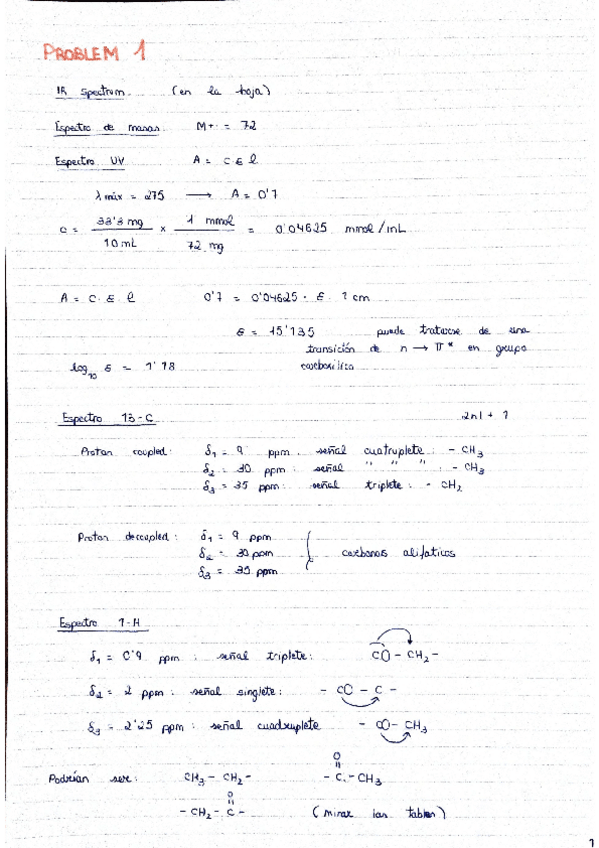 PROBLEM 1
IR spectrum. (en la hoja)
Espectro de masas M+· = 72
Espectro UV A = c ε l
λ máx = 275 → A = 0'7
c = 33'3 mg / 10 mL × 1 mmol / 72 mg = 0'04625 mmol/mL
A = c · ε · l 0'7 = 0'04625 · ε · 1 cm
ε = 15'135 puede tratarse de una
transición de n → π* en grupo
log₁₀ ε = 1'18 carboxílico
Espectro 13-C 2nI + 1
Proton coupled: δ₁ = 9 ppm : señal cuatruplete : - CH₃
δ₂ = 30 ppm : señal " " " : - CH₃
δ₃ = 35 ppm : señal triplete : - CH₂
Proton decoupled : δ₁ = 9 ppm
δ₂ = 30 ppm carbonos alifáticos
δ₃ = 35 ppm
Espectro 1-H
δ₁ = 0'9 ppm : señal triplete: CO - CH₂ -
δ₂ = 2 ppm : señal singlete : - CO - C -
δ₃ = 2'25 ppm : señal cuadruplete - CO - CH₃
Podrían ser: CH₃ - CH₂ - - C - CH₃
O
||
- CH₂ - C - (mirar las tablas)
O
||
1